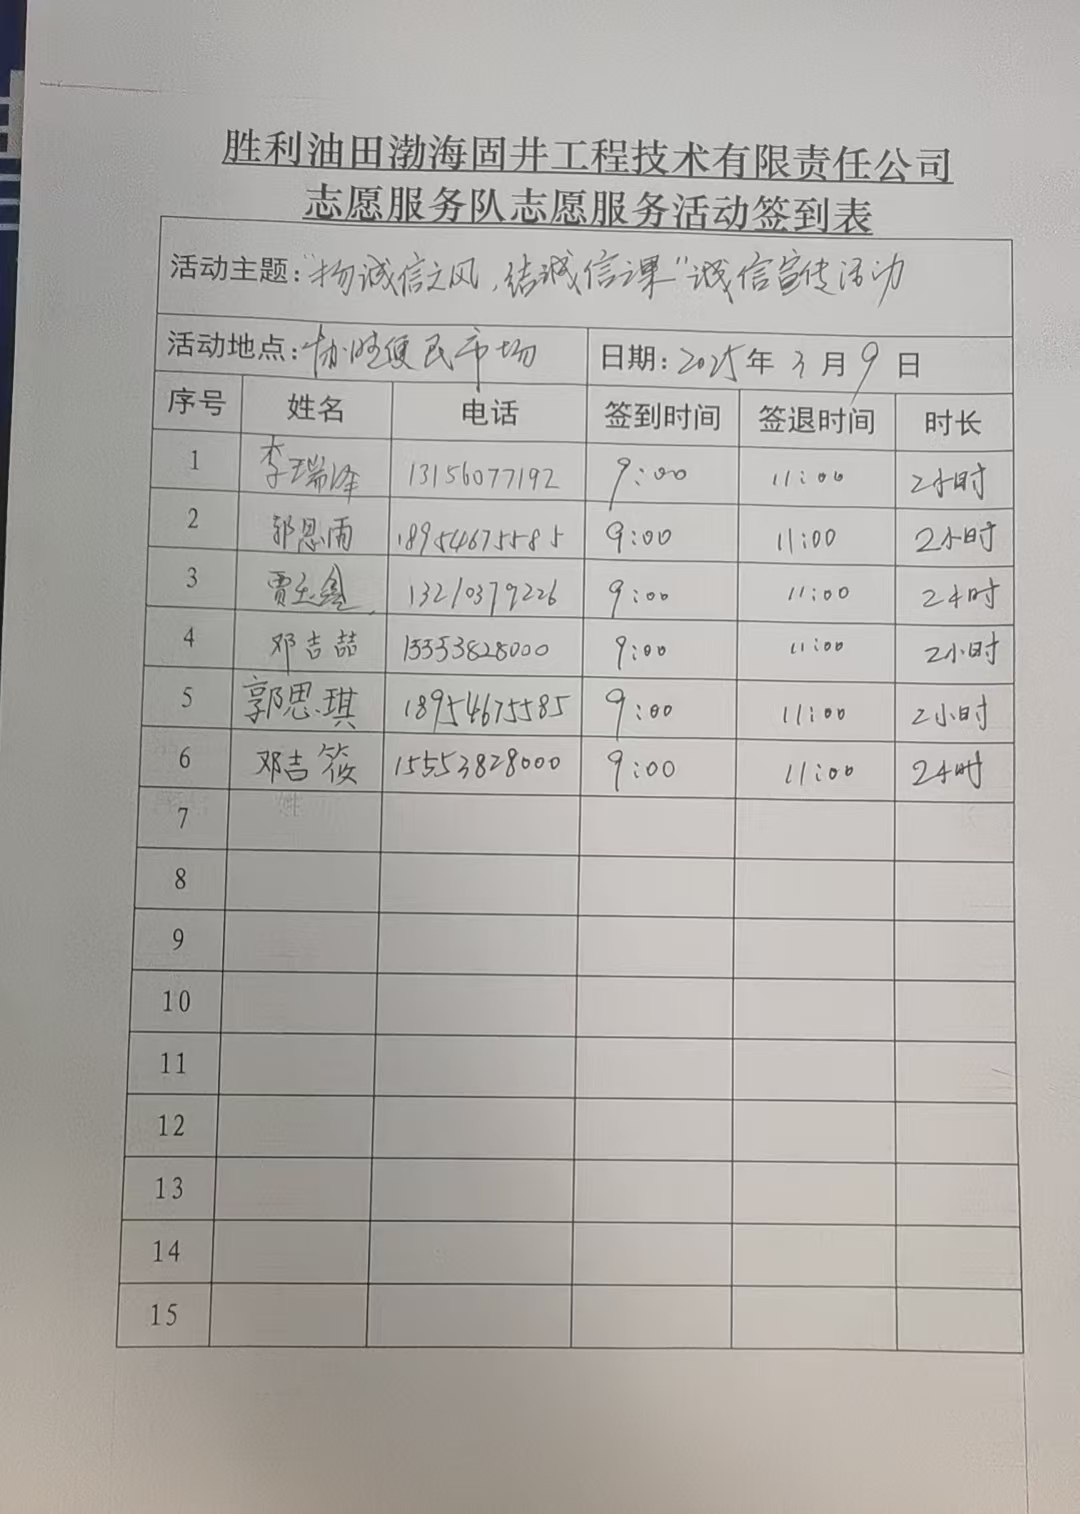 胜利油田渤海固井工程技术有限责任公司
志愿服务队志愿服务活动签到表
活动主题：“扬诚信之风，结诚信之果”诚信宣传活动
活动地点：便民市场 日期：2025年3月9日
序号 姓名 电话 签到时间 签退时间 时长
1 李瑞泽 13156077192 9:00 11:00 2小时
2 郭思雨 18954675585 9:00 11:00 2小时
3 贾玉鑫 13210379226 9:00 11:00 2小时
4 邓吉喆 15553828000 9:00 11:00 2小时
5 郭思琪 18954675585 9:00 11:00 2小时
6 邓吉筱 15553828000 9:00 11:00 2小时
7
8
9
10
11
12
13
14
15